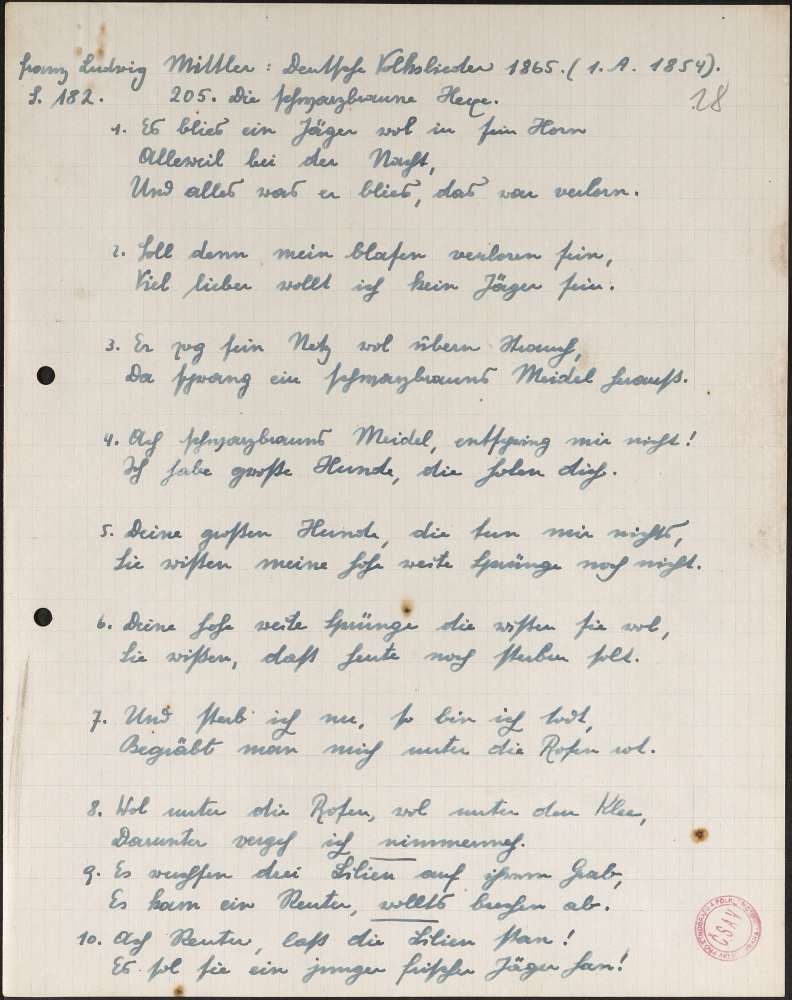 Franz Ludwig Mittler: Deutsche Volkslieder 1865. (1. A. 1854).
S. 182. 205. Die schwarzbraune Hexe. 28
1. Es blies ein Jäger wol in sein Horn
Alleweil bei der Nacht,
Und alles was er blies, das war verlorn.
2. Soll denn mein blasen verloren sein,
Viel lieber wollt ich kein Jäger sein.
3. Er zog sein Netz wol übern Strauch,
Da sprang ein schwarzbrauns Meidel herauß.
4. Ach schwarzbrauns Meidel, entspring mir nicht!
Ich habe große Hunde, die holen dich.
5. Deine großen Hunde, die tun mir nichts,
Sie wißen meine hohe weite Sprünge noch nicht.
6. Deine hohe weite Sprünge die wißen sie wol,
Sie wißen, daß heute noch sterben solt.
7. Und sterb ich nu, so bin ich todt,
Begräbt man mich unter die Rosen rot.
8. Wol unter die Rosen, wol unter den Klee,
Darunter vergeh ich nimmermeh.
9. Es wuchsen drei Lilien auf ihrem Grab,
Es kam ein Reuter, wollts brechen ab.
10. Ach Reuter, laß die Lilien stan!
Es sol sie ein junger frischer Jäger han!
ČSAV